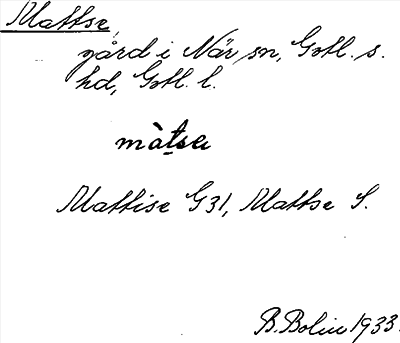 Mattse,
gård i När sn, Gotl. s.
hd, Gotl. l.
màtse
Mattise G31, Mattse S.
B. Bolin 1933.